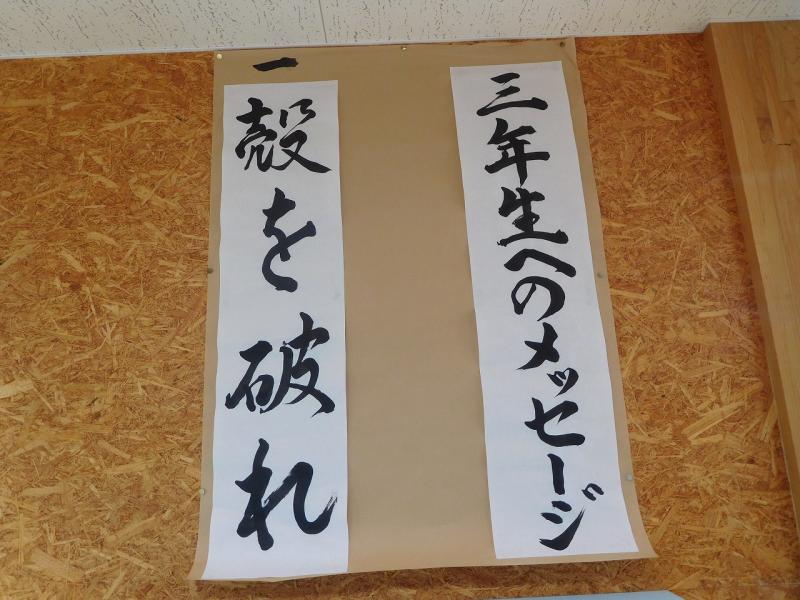 三年生へのメッセージ
一殻を破れ